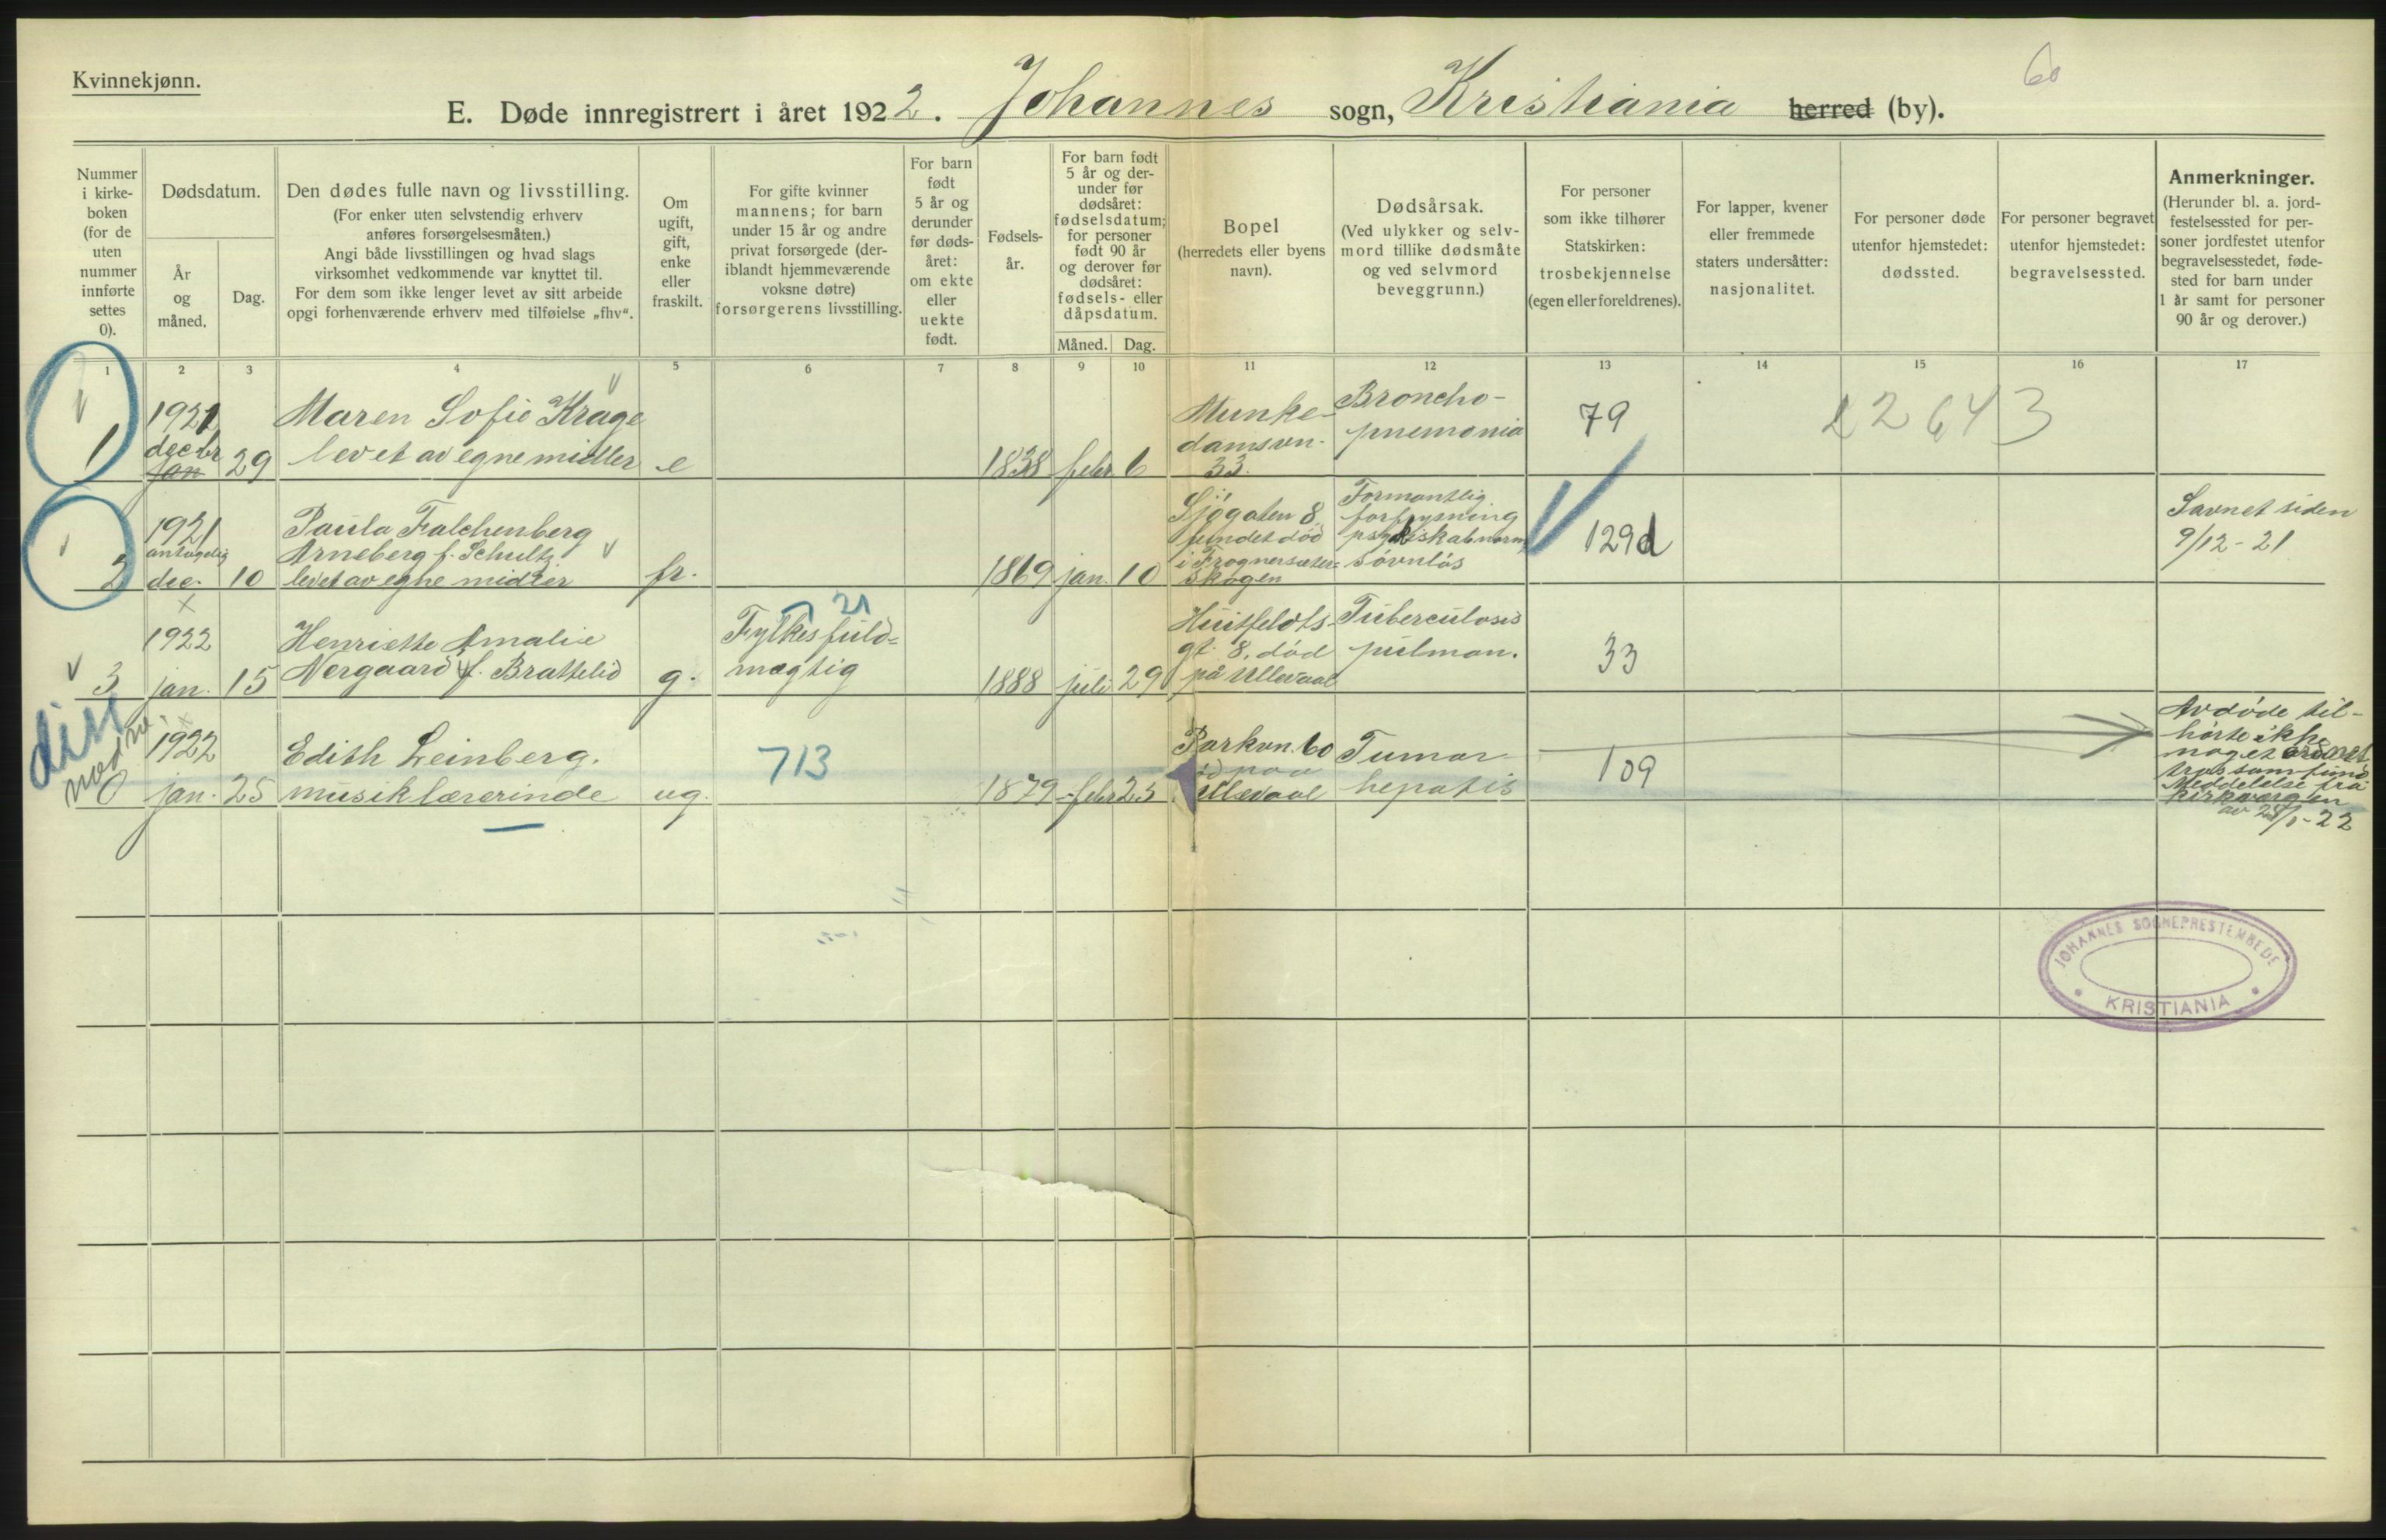 Kvinnekjønn.
60
E. Døde innregistrert i året 1922. Johannes sogn, Kristiania herred (by).
Nummer
i kirke-
boken
(for de
uten
nummer
innførte
settes
0).
Dødsdatum.
År
og
måned.
Dag.
Den dødes fulle navn og livsstilling.
(For enker uten selvstendig erhverv
anføres forsørgelsesmåten.)
Angi både livsstillingen og hvad slags
virksomhet vedkommende var knyttet til.
For dem som ikke lenger levet av sitt arbeide
opgi forhenværende erhverv med tilføielse „fhv“.
Om
ugift,
gift,
enke
eller
fraskilt.
For gifte kvinner
mannens; for barn
under 15 år og andre
privat forsørgede (der-
iblandt hjemmeværende
voksne døtre)
forsørgerens livsstilling.
For barn
født
5 år og
derunder
før døds-
året:
om ekte
eller
uekte
født.
Fødsels-
år.
For barn født
5 år og der-
under før
dødsåret:
fødselsdatum;
for personer
født 90 år
og derover før
dødsåret:
fødsels- eller
dåpsdatum.
Måned. Dag.
Bopel
(herredets eller byens
navn).
Dødsårsak.
(Ved ulykker og selv-
mord tillike dødsmåte
og ved selvmord
beveggrunn.)
For personer
som ikke tilhører
Statskirken:
trosbekjennelse
(egen eller foreldrenes).
For lapper, kvener
eller fremmede
staters undersåtter:
nasjonalitet.
For personer døde
utenfor hjemstedet:
dødssted.
For personer begravet
utenfor hjemstedet:
begravelsessted.
Anmerkninger.
(Herunder bl. a. jord-
festelsessted for per-
soner jordfestet utenfor
begravelsesstedet, føde-
sted for barn under
1 år samt for personer
90 år og derover.)
1 2 3 4 5 6 7 8 9 10 11 12 13 14 15 16 17
1
1921
decbr
jan
29
Maren Sofie Krage
levet av egne midler
e
1838 febr 6
Munke-
damsvn.
33.
Broncho-
pnemonia
79
22643
2
1921
antagelig
dec. 10
Paula Falchenberg
Arneberg f. Schultz
levet av egne midler
fr.
1869 jan. 10
Sjøgaten 8
fundet død
i Frognersæter-
skogen
Formentlig
forfrysning
psykisk abnorm
søvnløs
129d
Savnet siden
9/12-21
3
1922
jan. 15
Henriette Amalie
Nergaard f. Brattelid
g.
21
Fylkesfuld-
mægtig
1888 juli 29
Huitfeldts-
gt. 8, død
på Ullevaal
Tuberculosis
pulmon.
33
diss
0
1922
jan. 25
Edith Leinberg.
musiklærerinde
ug.
713
1879 febr 23
Parkvn. 60
Ullevaal
Tumor
hepatis
109
Avdøde til-
hørte ikke
noget ordnet
trossamfund
Meddelelse fra
kirkeværgen
av 28/1-22
JOHANNES SOGNEPRESTEMBEDE
KRISTIANIA